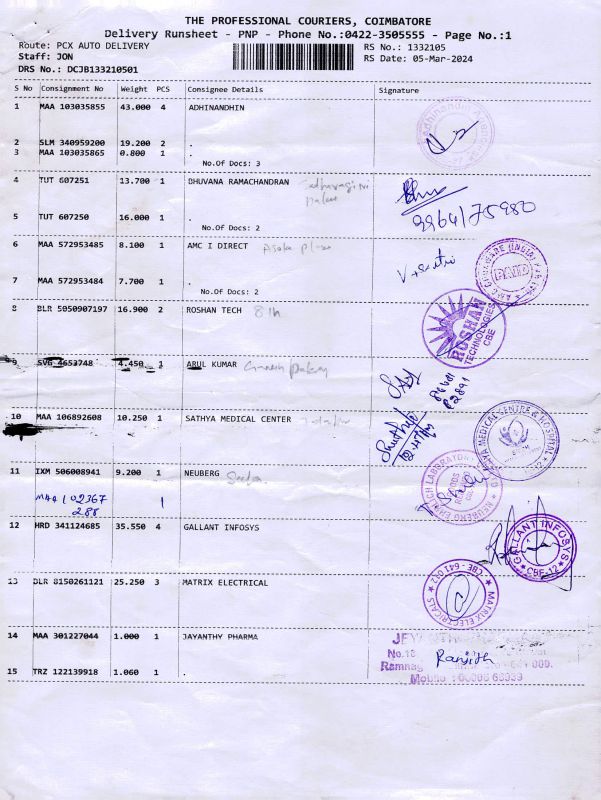 THE PROFESSIONAL COURIERS, COIMBATORE
Delivery Runsheet - PNP - Phone No.:0422-3505555 - Page No.:1
Route: PCX AUTO DELIVERY RS No.: 1332105
Staff: JON RS Date: 05-Mar-2024
DRS No.: DCJB133210501
S No Consignment No Weight PCS Consignee Details Signature
1 MAA 103035855 43.000 4 ADHINANDHIN
2 SLM 340959200 19.200 2 .
3 MAA 103035865 0.800 1 .
No.Of Docs: 3
4 TUT 607251 13.700 1 BHUVANA RAMACHANDRAN
99641/75980
5 TUT 607250 16.000 1 .
No.Of Docs: 2
6 MAA 572953485 8.100 1 AMC I DIRECT
7 MAA 572953484 7.700 1 .
No.Of Docs: 2
8 BLR 5050907197 16.900 2 ROSHAN TECH 8th
ROSHAN TECHNOLOGIES CBE
9 SVG 4653748 4.450 1 ARUL KUMAR
10 MAA 106892608 10.250 1 SATHYA MEDICAL CENTER
MEDICAL CENTRE & HOSPITAL
11 IXM 506008941 9.200 1 NEUBERG
MAA 102367 1
288
12 HRD 341124685 35.550 4 GALLANT INFOSYS
GALLANT INFOSYS CBE-12
13 BLR 8150261121 25.250 3 MATRIX ELECTRICAL
MATRIX ELECTRICALS CBE - 641 012
14 MAA 301227044 1.000 1 JAYANTHY PHARMA
Ranjith
15 TRZ 122139918 1.060 1 .